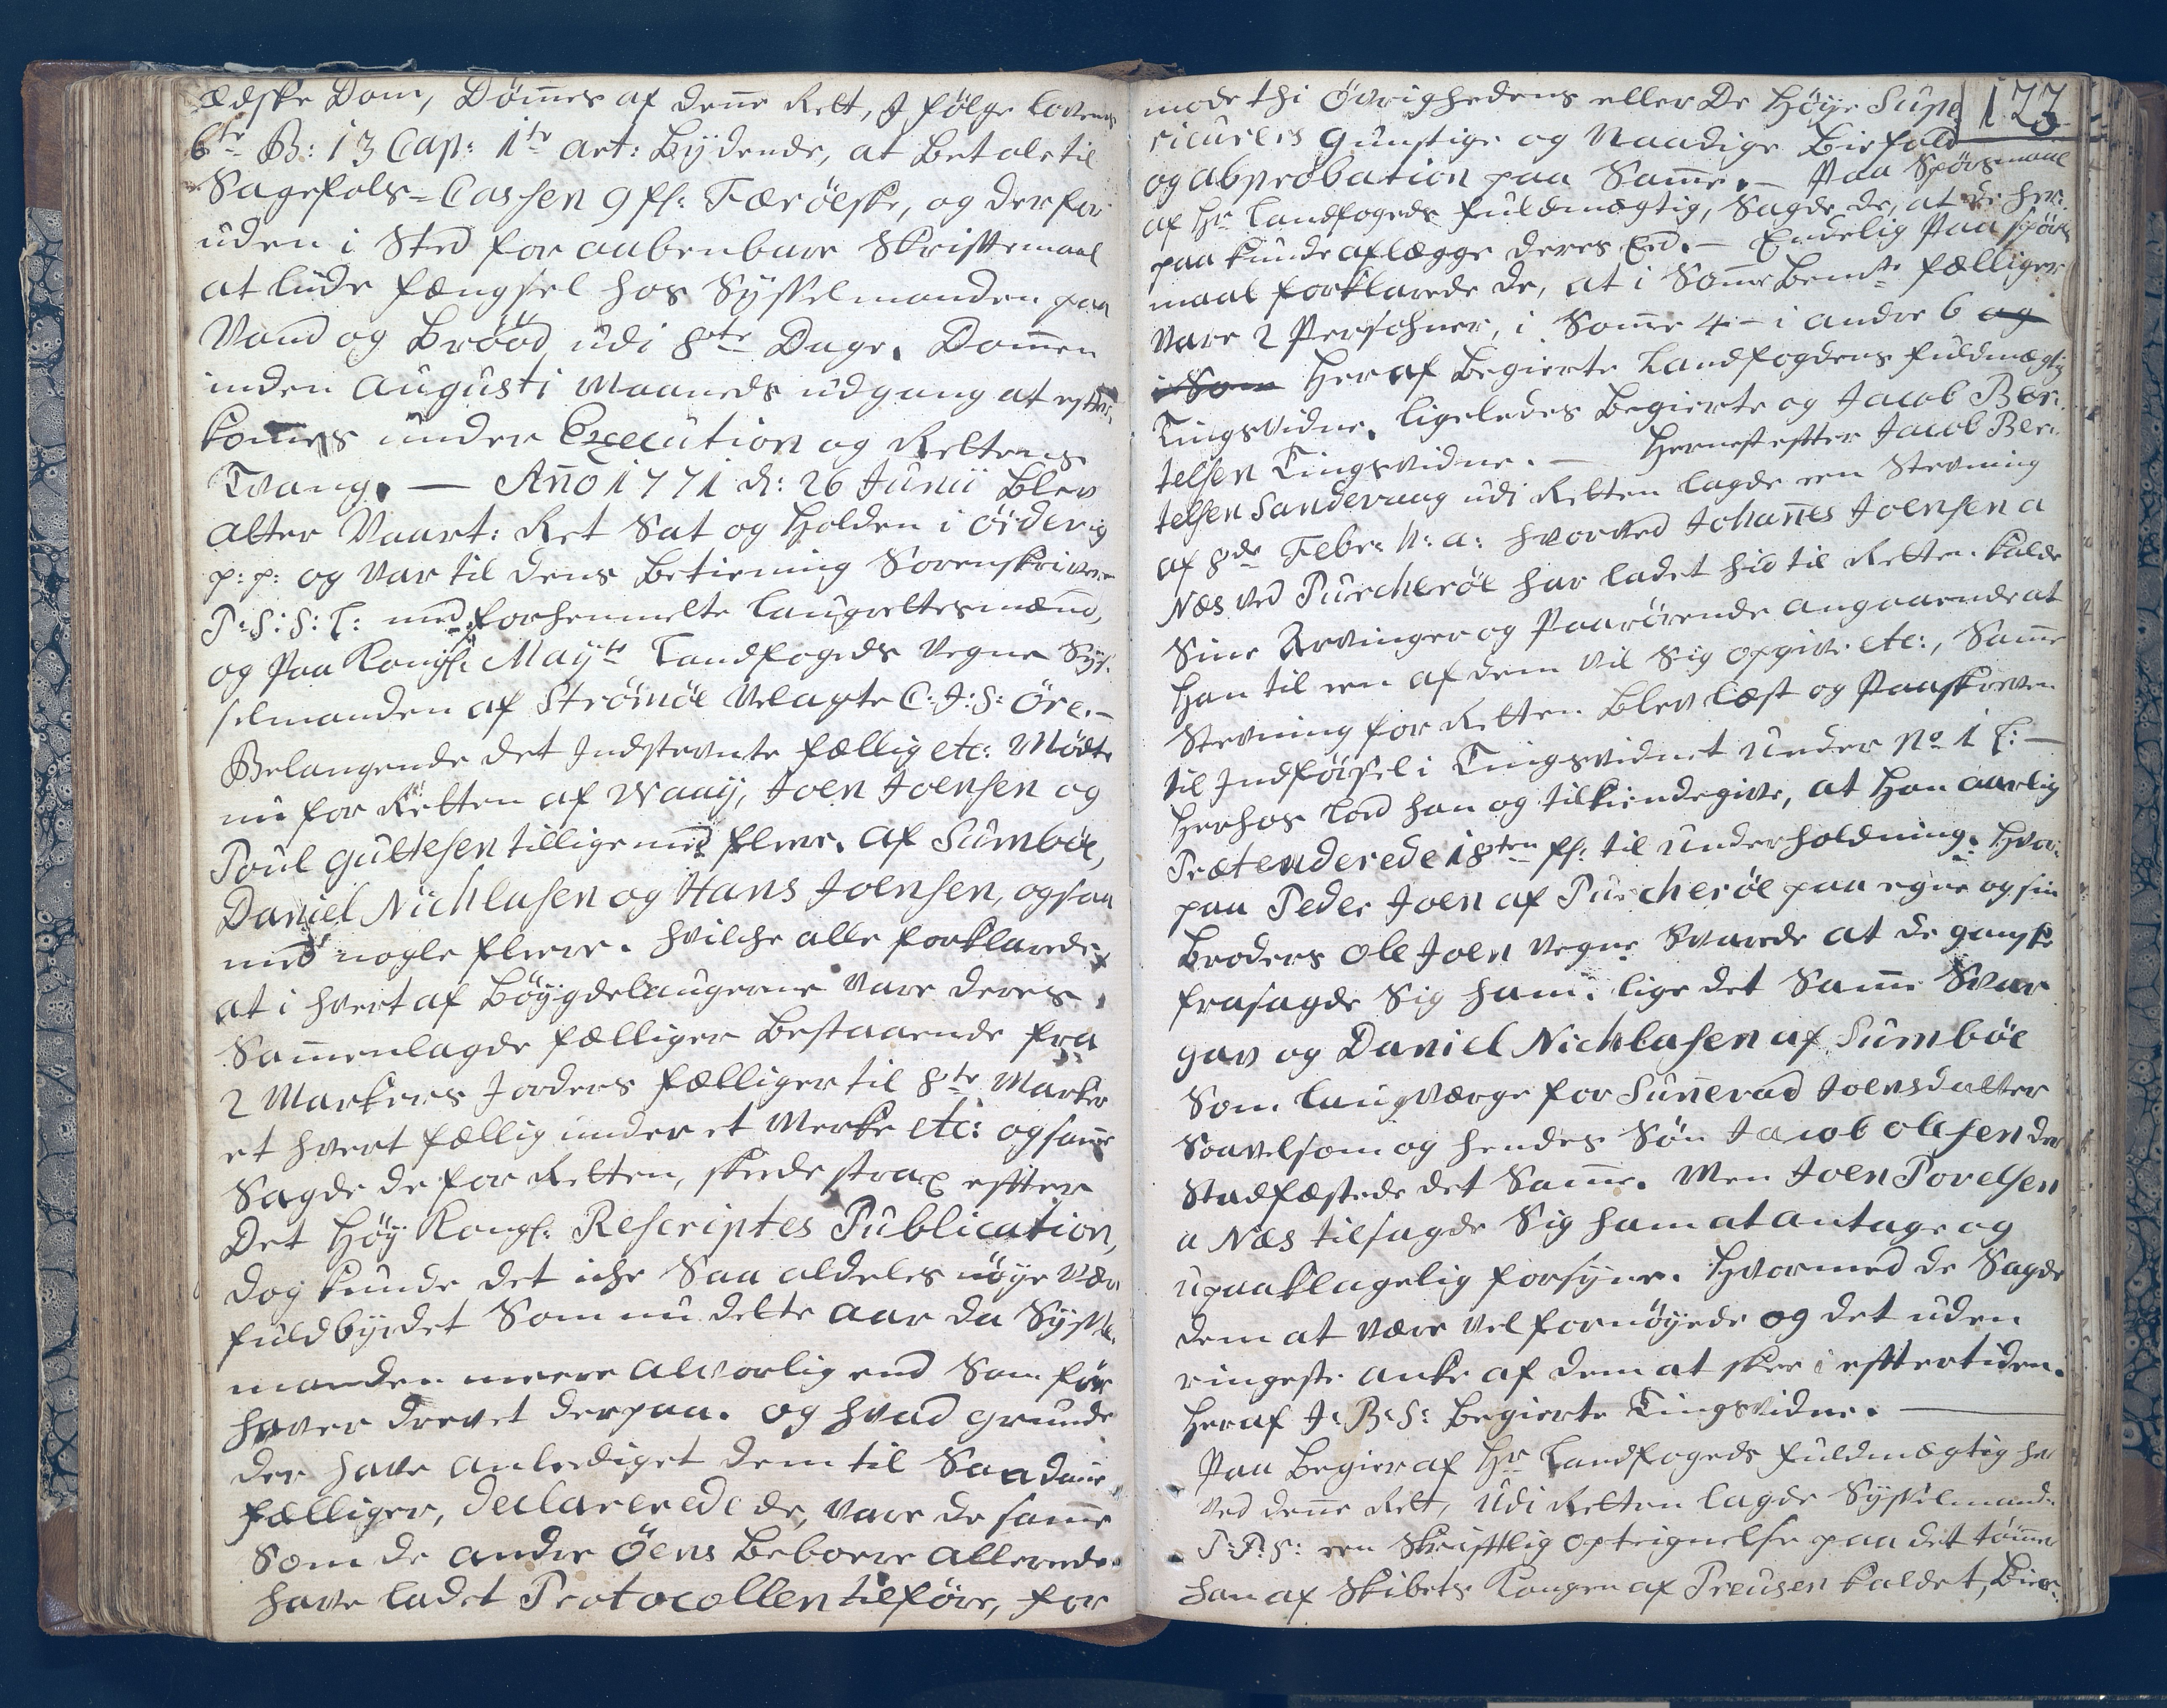 ædske Dom, Dömes af dene Rett, I fölge Lovens
6te B: 13 Cap: 1te art: Bÿdende, at Betale til
Sagefals-Cassen 9 fl: Færöeske, og der for
uden i Sted for aabenbare Skriftemaal
at lude fængsel hos Sÿsselmanden paa
Vand og Bröod udi 8te Dage. Dommen
inden Augusti Maaneds udgang at efter
komes under Execution og Rettens
Tvang. — Año 1771 d: 26 Junii Blev
atter Vaart: Ret Sat og Holden i Öiderig
p: p: og Var til dens Betiening Sorenskriver
P: S: S: L: med forhenmelte Laugrettesmænd,
og Paa Kongl: Mayts Landfogeds Vegne Sÿs-
selmanden af Strömöe Velagte C: J: S: Öre. —
Belangende det Indstevnte fællig etc: Mödte
nu for Retten af Waaÿ, Joen Joensen og
Poul Gultesen tillige med flere. Af Sumböe,
Daniel Nichlasen og Hans Joensen, ogsaa
med nogle flere. hvilche alle forklarede,
at i hvert af Böÿgdelaugerne Vare deres
Sammenlagde fælliger Bestaaende fra
2 Markers Jorders fælliger til 8te Marker
et hvert fællig under et Merke etc: og saame
Sagde de for Retten, skede strax efter
Det Höÿ Kongl: Rescriptes Publication,
dog kunde det iche Saa aldeles nöÿe Vær
fuldbÿrdet Som nu dette Aar da Sÿssel-
manden meere alvorlig end Som för
haver drevet derpaa. og hvad grunde
der have anlediget dem til Saadane
fælliger, declarerede de, Vare de same
Som de andre Öens Beboere allerede
have ladet Protocollen tilföre, for
mode thi Övrighedens eller De Höÿe Supe- 173
rieurers gunstige og Naadige Biefald
og Absrobation paa Same. — Paa Spörsmaal
af Hr Landfogeds fuldmægtig, Sagde de, at de her
paa kunde aflægge deres Eed. — Endelig Paa spörs
maal forklarede de, at i Some Bemte fælliger
Vare 2 Persohner, i Some 4 - i andre 6 og
i Som Heraf Begierte Landfogdens fuldmægtig
Tingsvidne. ligeledes Begierte og Jacob Ber-
telsen Tingsvidne. — Hernest efter Jacob Ber-
telsen Sandevaag udi Retten lagde een Stevning
af 8de Febr: h: a: hvorved Johañes Joensen a
Næs ved Purcheröe har ladet hid til Retten kalde
Sine Arvinger og Paarörende angaaende at
Han til een af dem vil Sig opgive etc:, Same
Stevning for Retten Blev læst og Paaskreven
til Indförsel i Tingsvidnet under No 1 L: —
Herhos Lod han og tilkiendegive, at Han aarlig
Prætenderede 18ten fl: til underholdning. Hvor-
paa Peder Joen af Purcheröe paa egne og sin
Broders Ole Joen Vegne Svarede at de ganske
frasagde Sig ham. lige det Same Svar
gav og Daniel Nichlasen af Sumböe
Som laugværge for Suñevad Joensdatter
Saavelsom og hendes Sön Jacob Olesen der
Stadfæstede det Same. Men Joen Povelsen
a Næs tilsagde Sig ham at antage og
upaaklagelig forsÿne. Hvormed de Sagde
dem at være Vel fornöÿede og det uden
ringeste anke af dem at skee i eftertiden.
Heraf J: B: S: Begierte Tingsvidne. —
Paa Begier af Hr Landfogeds fuldmægtig her
ved dene Rett, Udi Retten lagde Sÿsselmand
P: P: S: een Skriftlig Opteignelse paa det tömer
han af Skibets Kongen af Preusen kaldet, Bier-